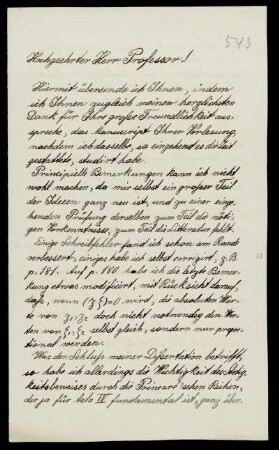 543
Hochgeehrter Herr Professor!
Hiermit übersende ich Ihnen, indem
ich Ihnen zugleich meinen herzlichsten
Dank für Ihre große Freundlichkeit aus-
spreche, das Manuscript Ihrer Vorlesung,
nachdem ich dasselbe, so eingehend es die Zeit
gestattete, studirt habe.
Principielle Bemerkungen kann ich nicht
wohl machen, da mir selbst ein großer Teil
der Ideeen ganz neu ist, und zu einer einge-
henden Prüfung derselben zum Teil die nöti-
gen Vorkenntnisse, zum Teil die Litteratur fehlt.
Einige Schreibfehler fand ich schon am Rande
verbessert, einiges habe ich selbst corrigirt, z. B.
p. 181. Auf p. 180 habe ich die letzte Bemer-
kung etwas modificirt, mit Rücksicht darauf,
daß, wenn = 0 wird, die absoluten Wer-
te von doch nicht notwendig den Wer-
ten von selbst gleich, sondern nur propor-
tional werden.
Was den Schluß meiner Dissertation betrifft,
so habe ich allerdings die Wichtigkeit des Stetig-
keitsbeweises durch die Poincaré'schen Reihen,
der ja für Acta IV fundamental ist, ganz über-